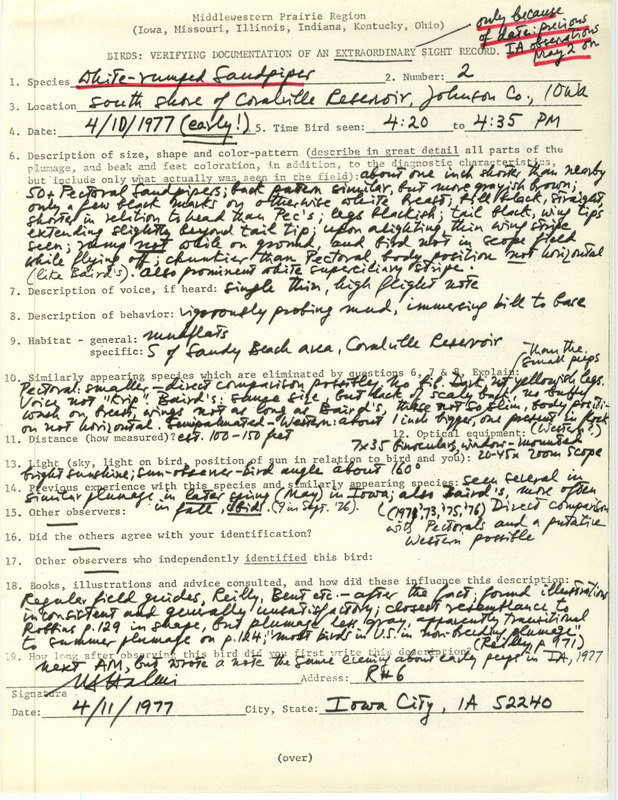 Middlewestern Prairie Region
(Iowa, Missouri, Illinois, Indiana, Kentucky, Ohio)
only because
of date: previous
IA observations
May 2 on
BIRDS: VERIFYING DOCUMENTATION OF AN EXTRAORDINARY SIGHT RECORD.
1. Species White-rumped Sandpiper 2. Number: 2
3. Location South shore of Coralville Reservoir, Johnson Co., Iowa
4. Date: 4/10/1977 (early!) 5. Time Bird seen: 4:20 to 4:35 PM
6. Description of size, shape and color-pattern (describe in great detail all parts of the
plumage, and beak and feet coloration, in addition, to the diagnostic characteristics,
but include only what actually was seen in the field): about one inch shorter than nearby
50± Pectoral Sandpipers; back pattern similar, but more grayish brown;
only a few black marks on otherwise white breast; bill black, straight
shorter in relation to head than Pec's; legs blackish; tail black, wing tips
extending slightly beyond tail tip; upon alighting, thin wing stripe
seen; rump not white on ground, and bird not in scope field
while flying off; chunkier than Pectoral, body position not horizontal
(like Baird's). also prominent white superciliary stripe.
7. Description of voice, if heard: single thin, high flight note
8. Description of behavior: vigorously probing mud, immersing bill to base
9. Habitat - general: mudflats
specific: S of Sandy Beach area, Coralville Reservoir
-than the
small peeps
10. Similarly appearing species which are eliminated by questions 6, 7 & 8. Explain:
Pectoral: smaller - direct comparison possible; no bib. Dark, not yellowish legs.
Voice not "krip". Baird's: same size, but lack of scaly back, no buffy
wash on breast, wings not as long as Baird's, these not so slim, body positi-
on not horizontal. Semipalmated - Western: about 1 inch bigger, one present in back
(West.?)
11. Distance (how measured)? est. 100-150 feet 12. Optical equipment:
7x35 binoculars, window-mounted
20-45x zoom scope
13. Light (sky, light on bird, position of sun in relation to bird and you):
bright sunshine; sun-observer-bird angle about 160°
14. Previous experience with this species and similarly appearing species: seen several in
similar plumage in later spring (May) in Iowa; also Baird's, more often
in fall, ibid. (9 in Sept. '76). (1971,'73,'75,'76) Direct comparison
with Pectorals and a putative
Western possible
15. Other observers:
16. Did the others agree with your identification?
17. Other observers who independently identified this bird:
18. Books, illustrations and advice consulted, and how did these influence this description:
Regular field guides, Reilly, Bent etc. - after the fact; found illustrations
inconsistent and generally unsatisfactory; closest resemblance to
Robbins p.129 in shape, but plumage less gray, apparently transitional
to summer plumage on p.124; "most birds in U.S. in non-breeding plumage"
(Reilly, p 171)
19. How long after observing this bird did you first write this description?
next AM, but wrote a note the same evening about early peeps in IA, 1977
Signature Address: RR#6
Date: 4/11/1977 City, State: Iowa City, IA 52240
(over)